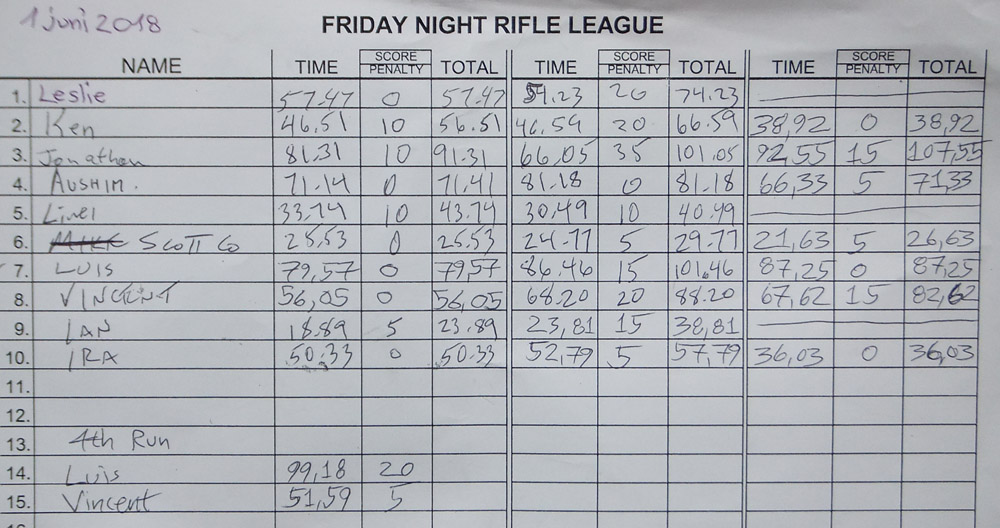 1 juni 2018
FRIDAY NIGHT RIFLE LEAGUE
NAME TIME SCORE PENALTY TOTAL TIME SCORE PENALTY TOTAL TIME SCORE PENALTY TOTAL
1. Leslie 57.47 0 57.47 54.23 20 74.23
2. Ken 46.51 10 56.51 46.59 20 66.59 38,92 0 38,92
3. Jonathan 81.31 10 91.31 66.05 35 101.05 92.55 15 107,55
4. AUSHIM. 71.14 0 71.41 81.18 0 81.18 66,33 5 71,33
5. 33.74 10 43.74 30,49 10 40.49
6. MIKE SCOTT CO 25,53 0 25.53 24.77 5 29.77 21,63 5 26,63
7. LUIS 79,57 0 79,57 86.46 15 101.46 87,25 0 87,25
8. VINCENT 56,05 0 56,05 68.20 20 88.20 67,62 15 82,62
9. IAN 18.89 5 23.89 23,81 15 38,81
10. IRA 50.33 0 50.33 52,79 5 57,79 36,03 0 36,03
11.
12.
13. 4th Run
14. Luis 99,18 20
15. Vincent 51,59 5